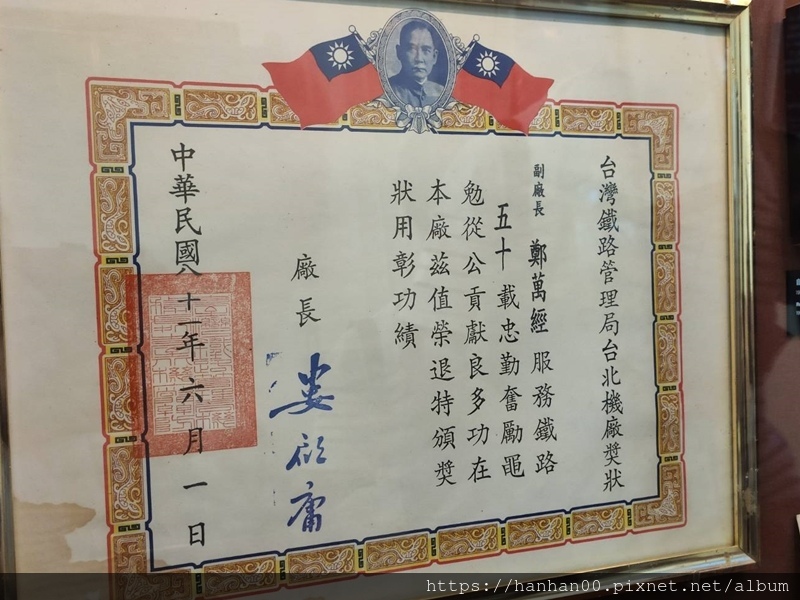 台灣鐵路管理局台北機廠獎狀
副廠長 鄭萬經 服務鐵路
五十載忠勤奮勵黽
勉從公貢獻良多功在
本廠茲值榮退特頒獎
狀用彰功績
廠長 婁 庸
中華民國八十二年六月一日
https://hanhan00.pixnet.net/album